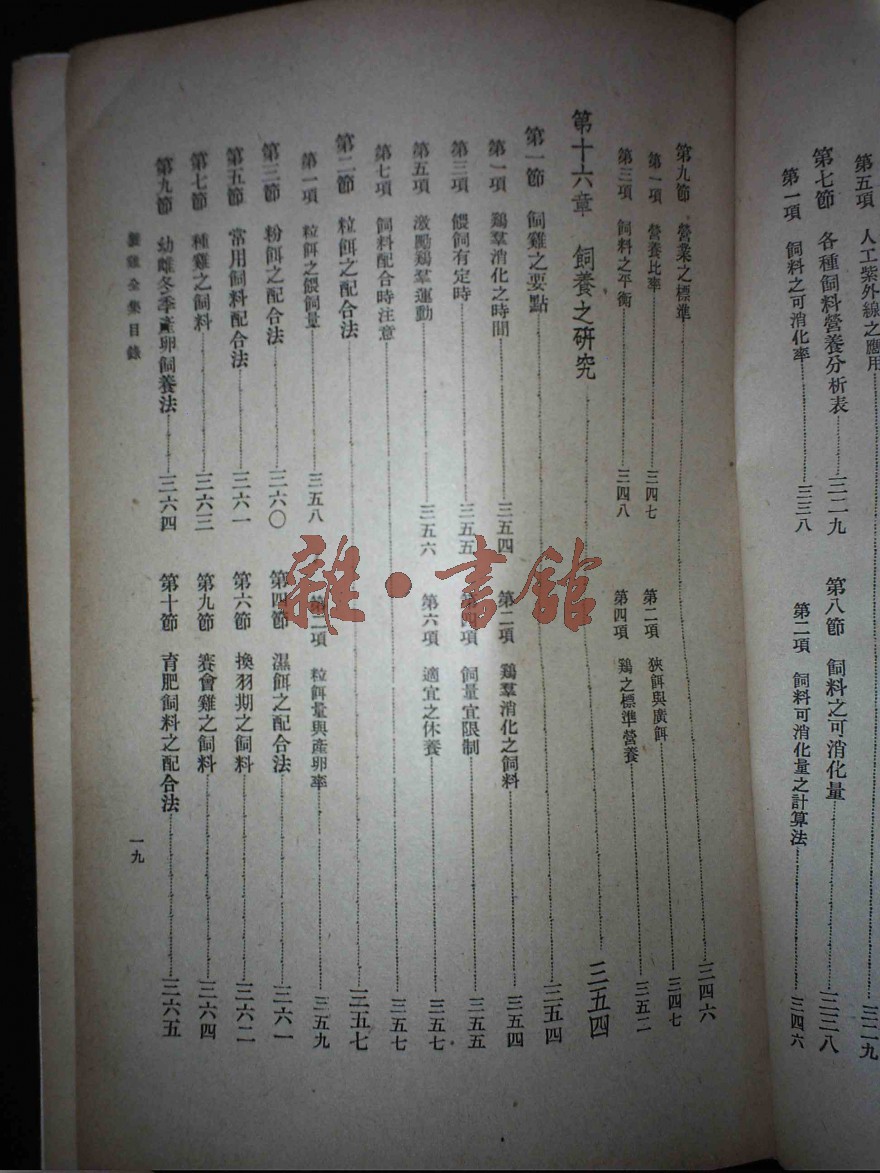 第五項　人工紫外線之應用……三二九
第七節　各種飼料營養分析表……三二九　第八節　飼料之可消化量……三三八
第一項　飼料之可消化率……三三八　第二項　飼料可消化量之計算法……三四六
第九節　營業之標準……三四六
第一項　營養比率……三四七　第二項　狹餌與廣餌……三四七
第三項　飼料之平衡……三四八　第四項　鶏之標準營養……三五二
第十六章　飼養之研究……三五四
第一節　飼雞之要點……三五四
第一項　鶏羣消化之時間……三五四　第二項　鶏羣消化之飼料……三五四
第三項　餵飼有定時……三五五　第四項　飼量宜限制……三五五
第五項　激勵鶏羣運動……三五六　第六項　適宜之休養……三五七
第七項　飼料配合時注意……三五七
第二節　粒餌之配合法……三五七
第一項　粒餌之餵飼量……三五八　第二項　粒餌量與產卵率……三五九
第三節　粉餌之配合法……三六〇　第四節　濕餌之配合法……三六一
第五節　常用飼料配合法……三六一　第六節　換羽期之飼料……三六二
第七節　種雞之飼料……三六三　第九節　賽會雞之飼料……三六四
第九節　幼雌冬季產卵飼養法……三六四　第十節　育肥飼料之配合法……三六五
養雞全集目錄　一九
雜·書館